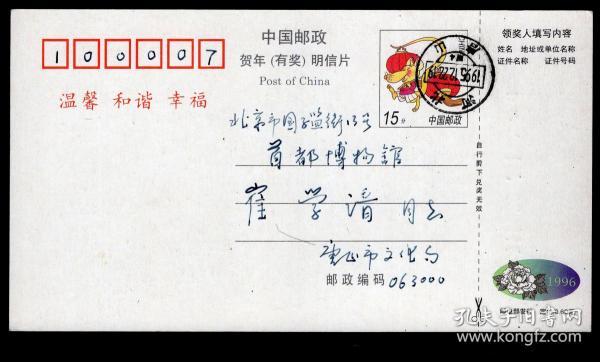 100007
中国邮政
贺年(有奖)明信片
Post of China
温馨 和谐 幸福
15分
中国邮政
河北
1995.12.22.19
领奖人填写内容
姓名 地址或单位名称
证件名称 证件号码
北京市国子监街13号
首都博物館
崔学谙 同志
唐山市文化局
邮政编码 063000
自行剪下兑奖无效
1996
孔夫子旧书网
www.kongfz.com